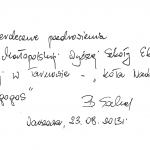 serdeczne pozdrowienia
Małopolskiej Wyższej Szkoły Ek
j w Tarnowie - "Koła Nauk
gogos"
Warszawa, 23.08.2013r.